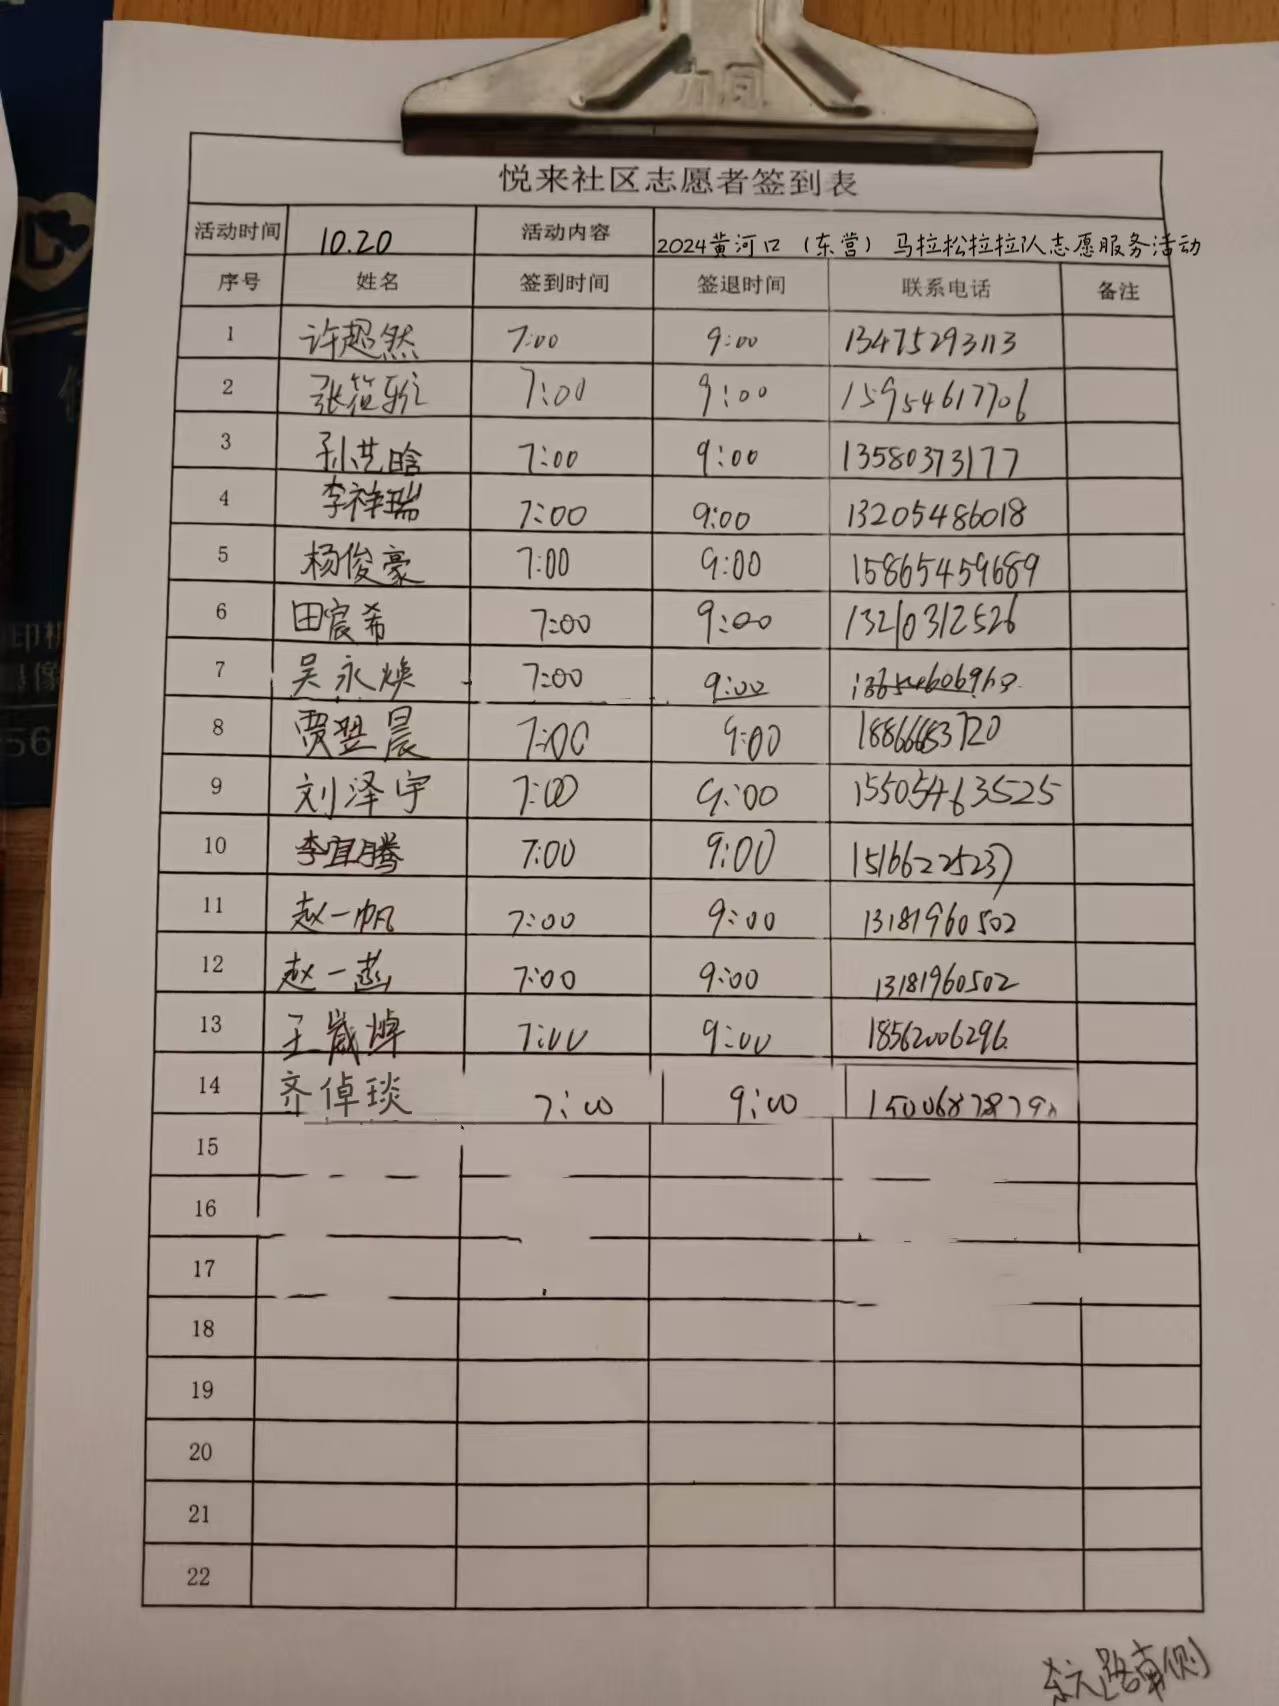 悦来社区志愿者签到表
活动时间 10.20 活动内容 2024黄河口（东营）马拉松拉拉队志愿服务活动
序号 姓名 签到时间 签退时间 联系电话 备注
1 许超然 7:00 9:00 13475293113
2 张筱 7:00 9:00 15954617706
3 孙艺晗 7:00 9:00 13580373177
4 李祥瑞 7:00 9:00 13205486018
5 杨俊豪 7:00 9:00 15865459689
6 田宸希 7:00 9:00 13210312526
7 吴永焕 7:00 9:00
8 贾翌晨 7:00 9:00 18866653720
9 刘泽宇 7:00 9:00 15505463525
10 李宜腾 7:00 9:00 15166225237
11 赵一帆 7:00 9:00 13181960502
12 赵一菡 7:00 9:00 13181960502
13 王崴焯 7:00 9:00 18562006296
14 齐倬琰 7:00 9:00
15
16
17
18
19
20
21
22
路南侧